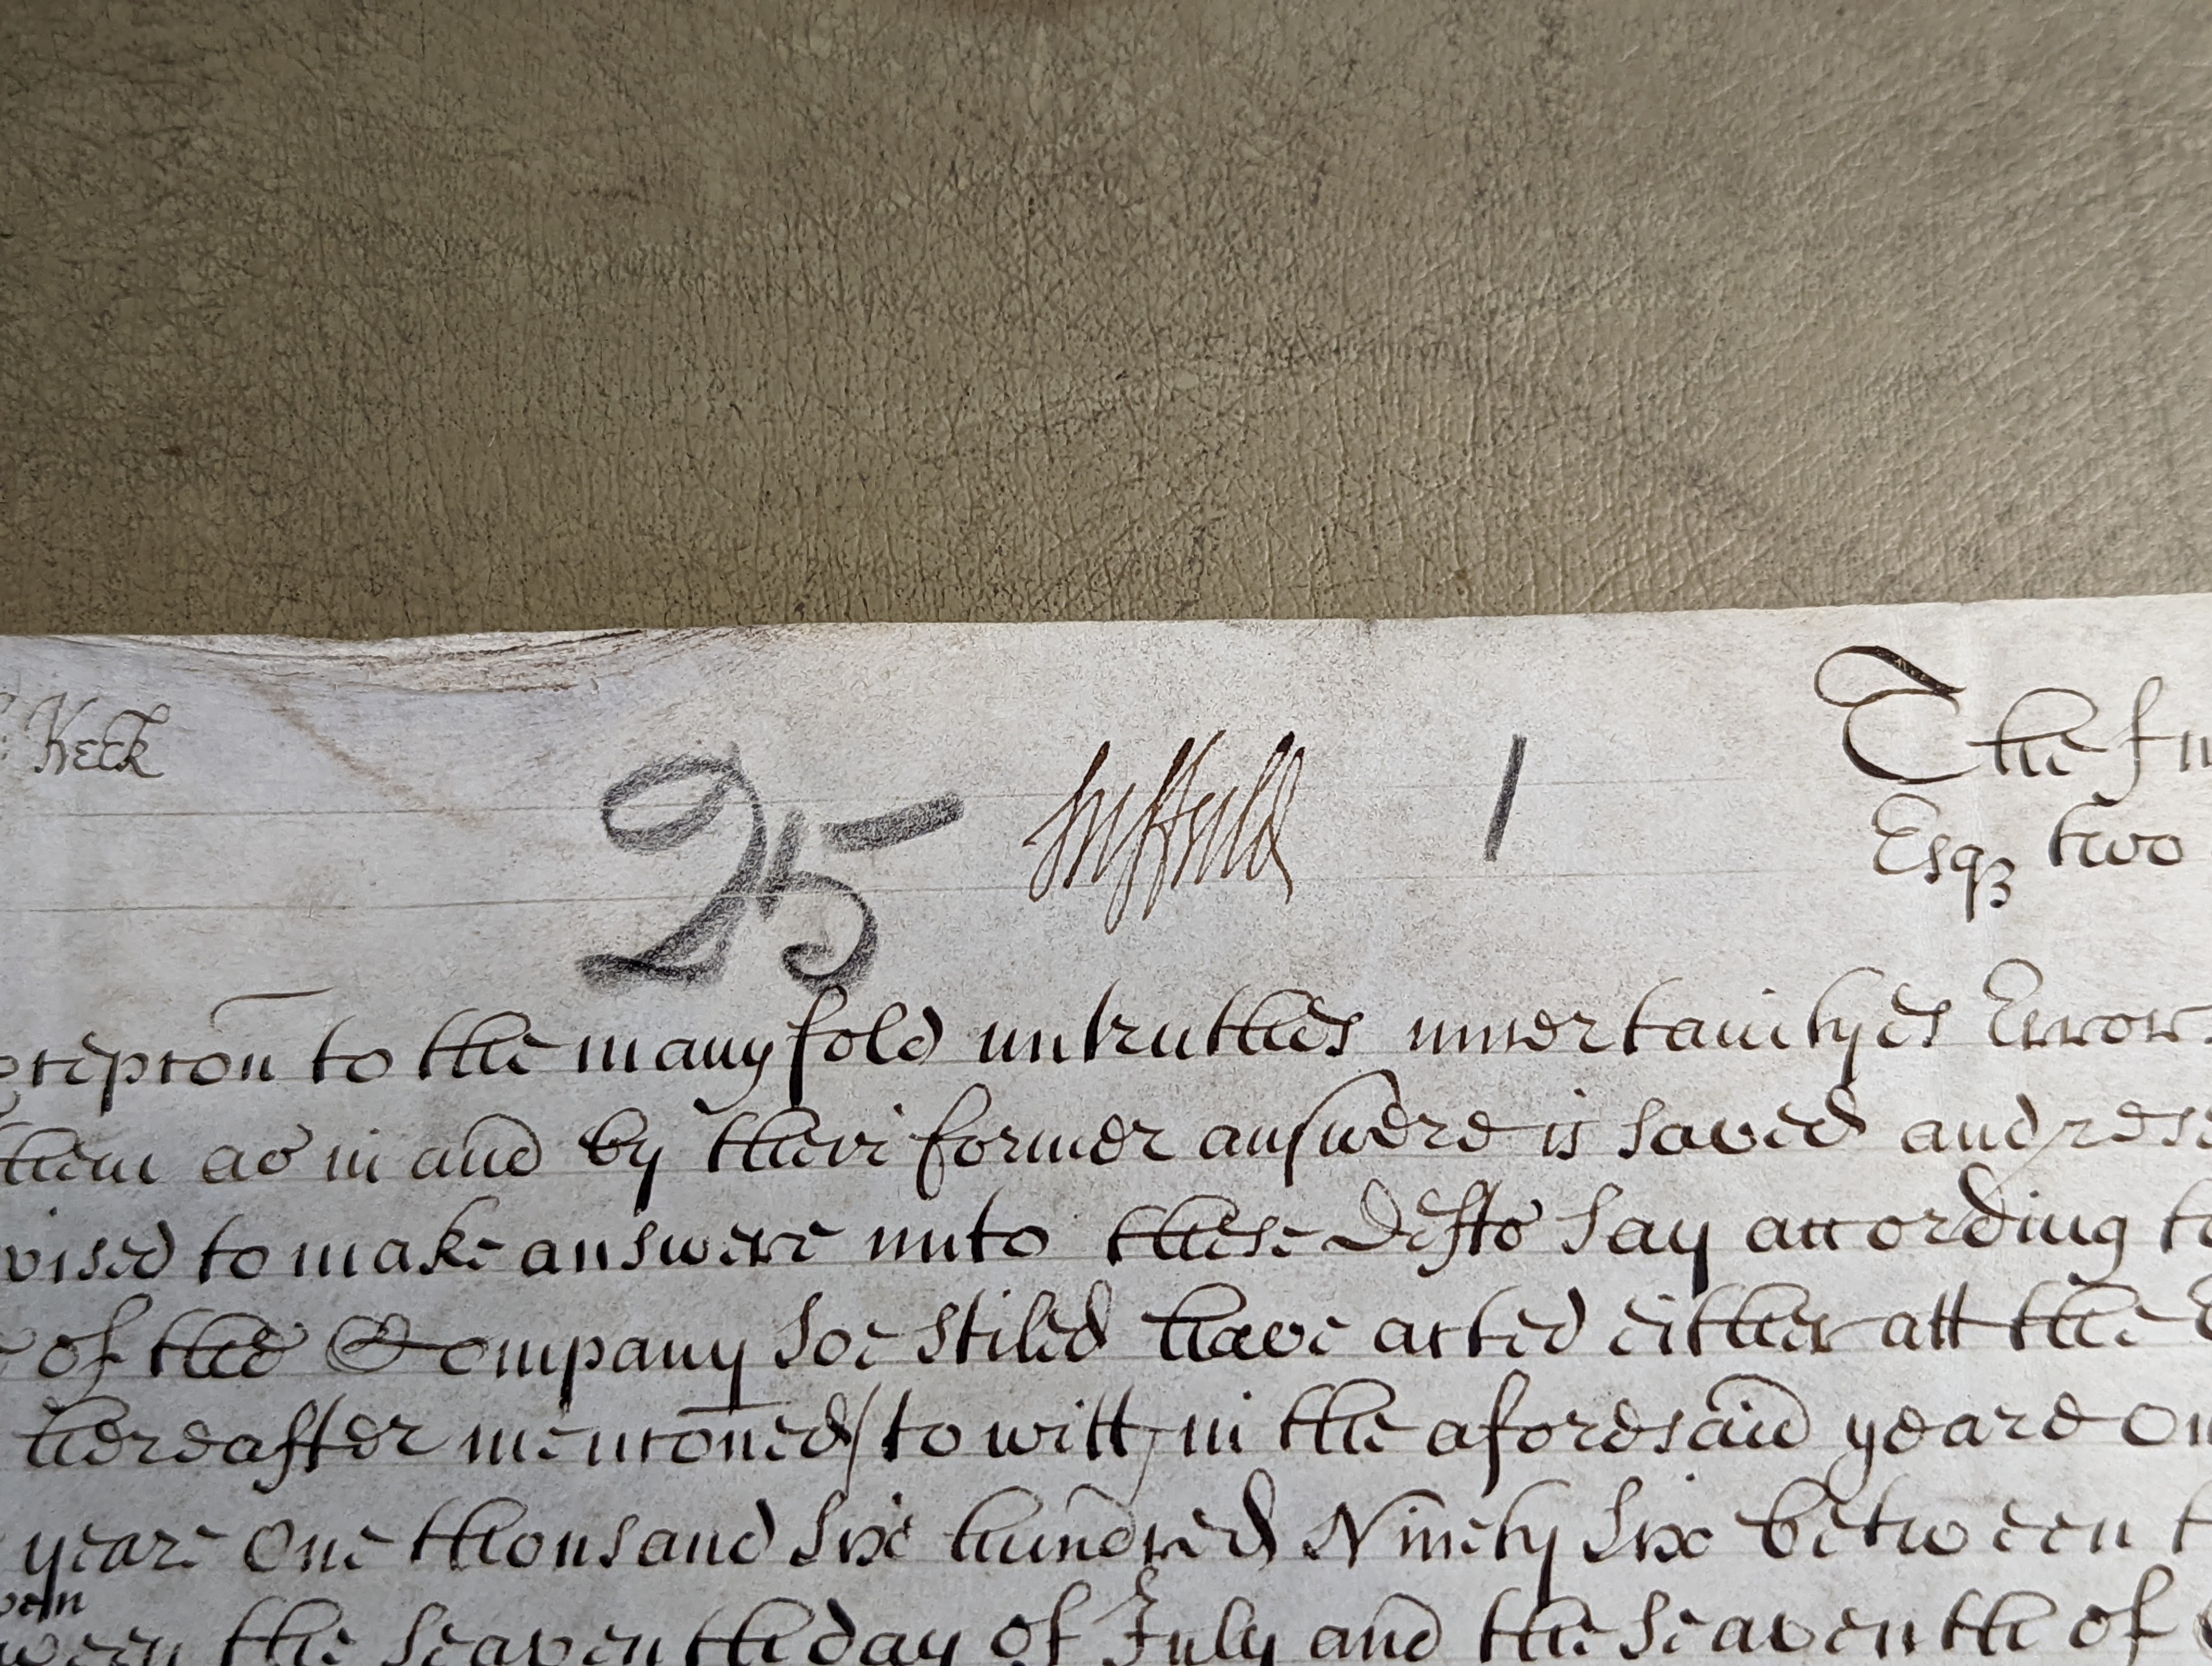 Keck
25 suffield 1 The fu
Esqꝫ two
cepcon to the manyfold untruthes uncertaintyes Error
them as in and by their former answere is saved and rese
vised to make answere unto these Defts say according to
of the Company soe stiled have acted either att the
hereafter menconed/ to witt in the aforesaid yeare On
yeare One thousand six hundred Ninety six between t
ween the seaventh day of July and the seaventh of